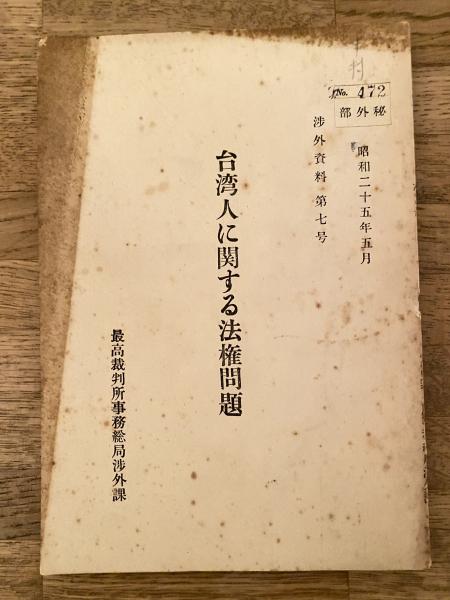 No. 472
部外秘
昭和二十五年五月
渉外資料第七号
台湾人に関する法権問題
最高裁判所事務総局渉外課